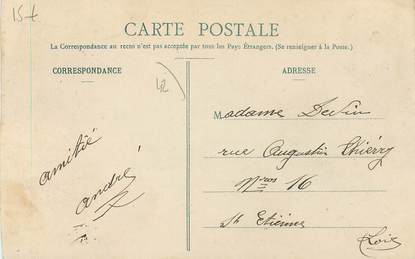 15€
CARTE POSTALE
La Correspondance au recto n'est pas acceptée par tous les Pays Étrangers. (Se renseigner à la Poste.)
CORRESPONDANCE
42
amitié
andré
ADRESSE
Madame
rue Augustin Thiérry
Nros 16
St Etienne
Loire